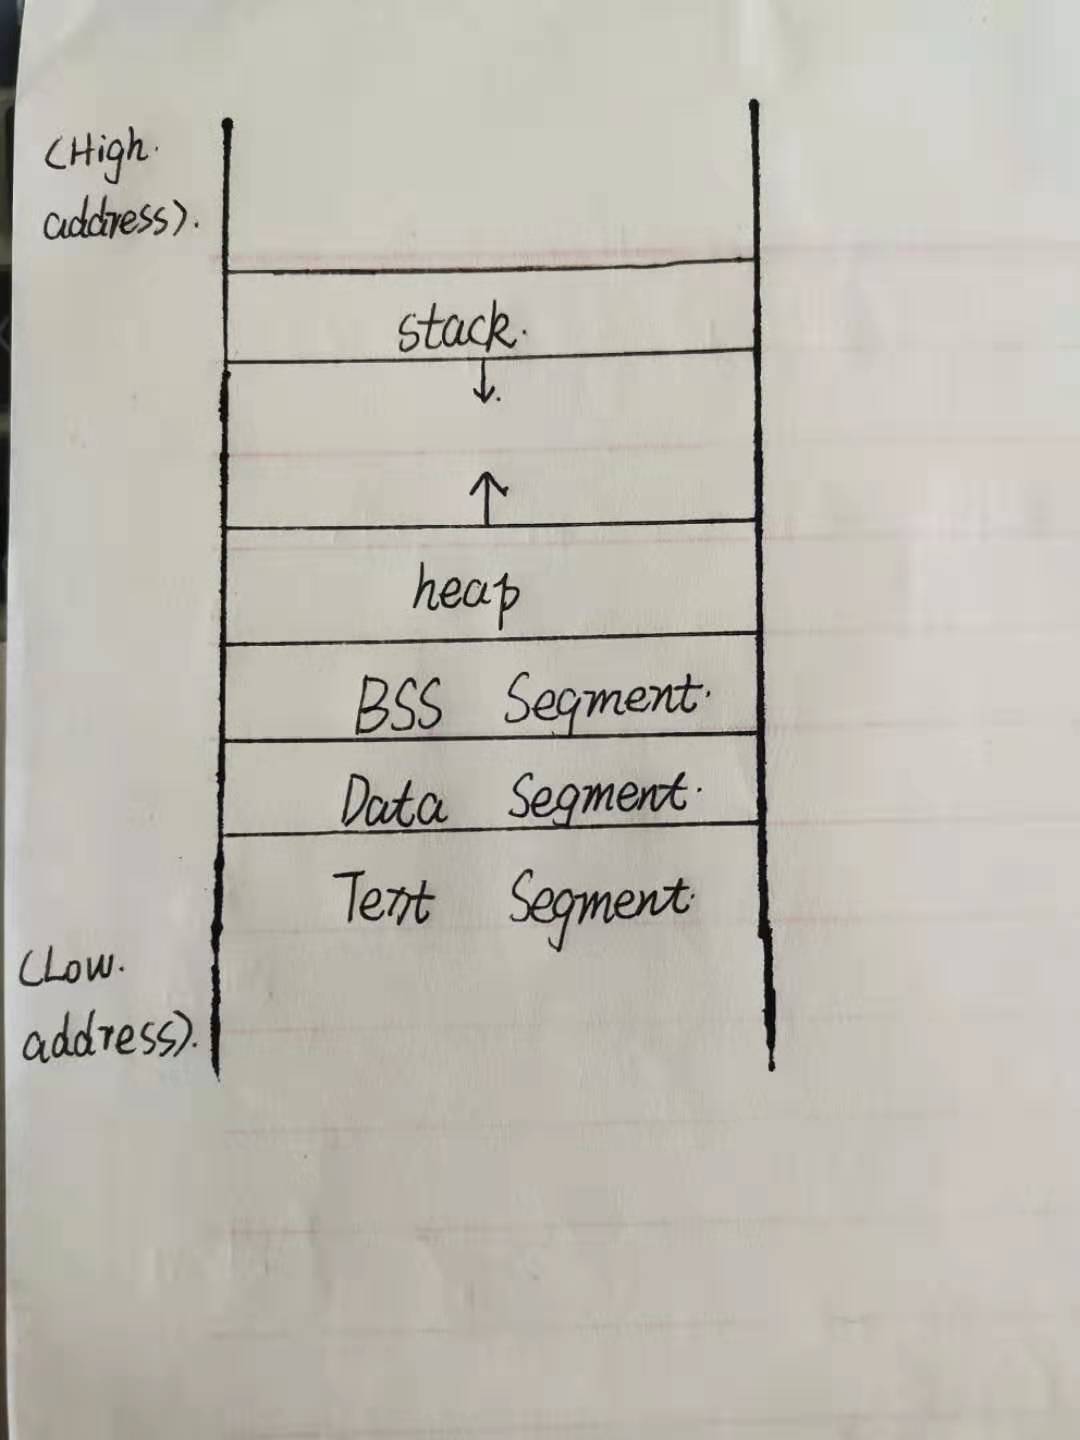 (High.
address).
stack.
heap
BSS Segment.
Data Segment.
Text Segment.
(Low.
address).